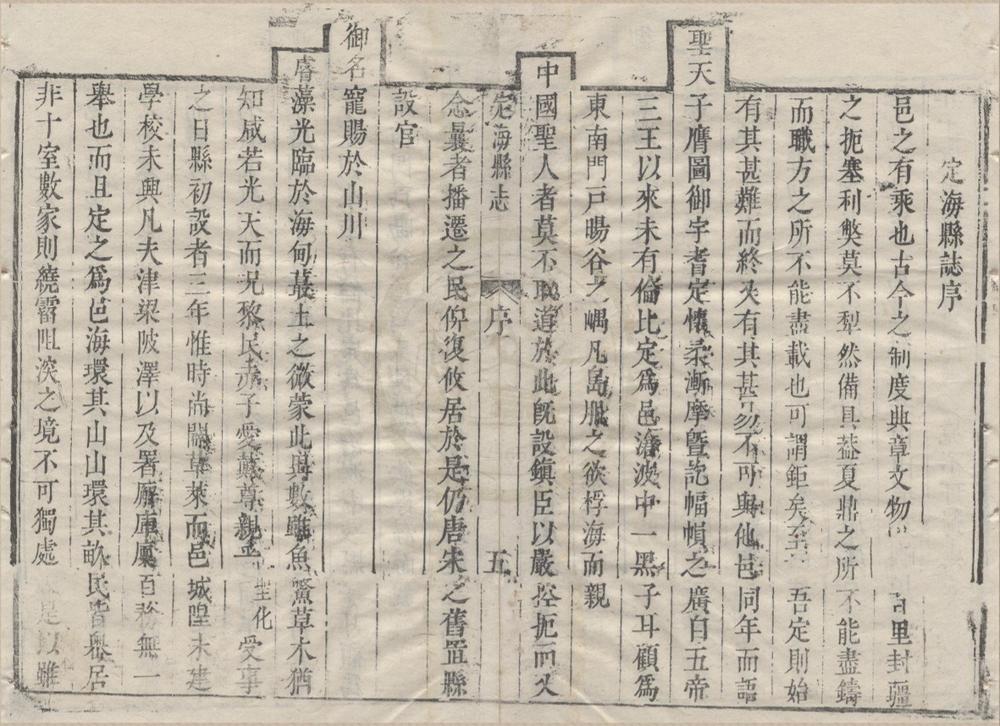 定海縣誌序
邑之有乘也古今之制度典章文物 里封疆
之扼塞利獘莫不犁然備具葢夏鼎之所不能盡鑄
而職方之所不能盡載也可謂鉅矣至 吾定則始
有其甚難而終又有其甚易不可與他邑同年而語
聖天子膺圖御宇耆定懷柔漸摩曁訖幅幀之廣自五帝
三王以來未有倫比定爲邑滄波中一黑子耳顧爲
東南門戸暘谷之嵎凡島服之欲桴海而親
中國聖人者莫不取道於此旣設鎭臣以嚴控扼而又
定海縣志 序 五
念曩者播遷之民俾復攸居於是仍唐宋之舊置縣
設官
御名寵賜於山川
睿藻光臨於海甸蕞土之微蒙此異數雖魚鱉草木猶
知咸若光天而况黎民赤子愛戴尊親 聖化 受事
之日縣初設者三年惟時尚闢草萊而邑城隍未建
學校未興凡夫津梁陂澤以及署廨庫厦百務無一
舉也而且定之爲邑海環其山山環其畝民皆舉居
非十室數家則繞霤阻深之境不可獨處 是以雖